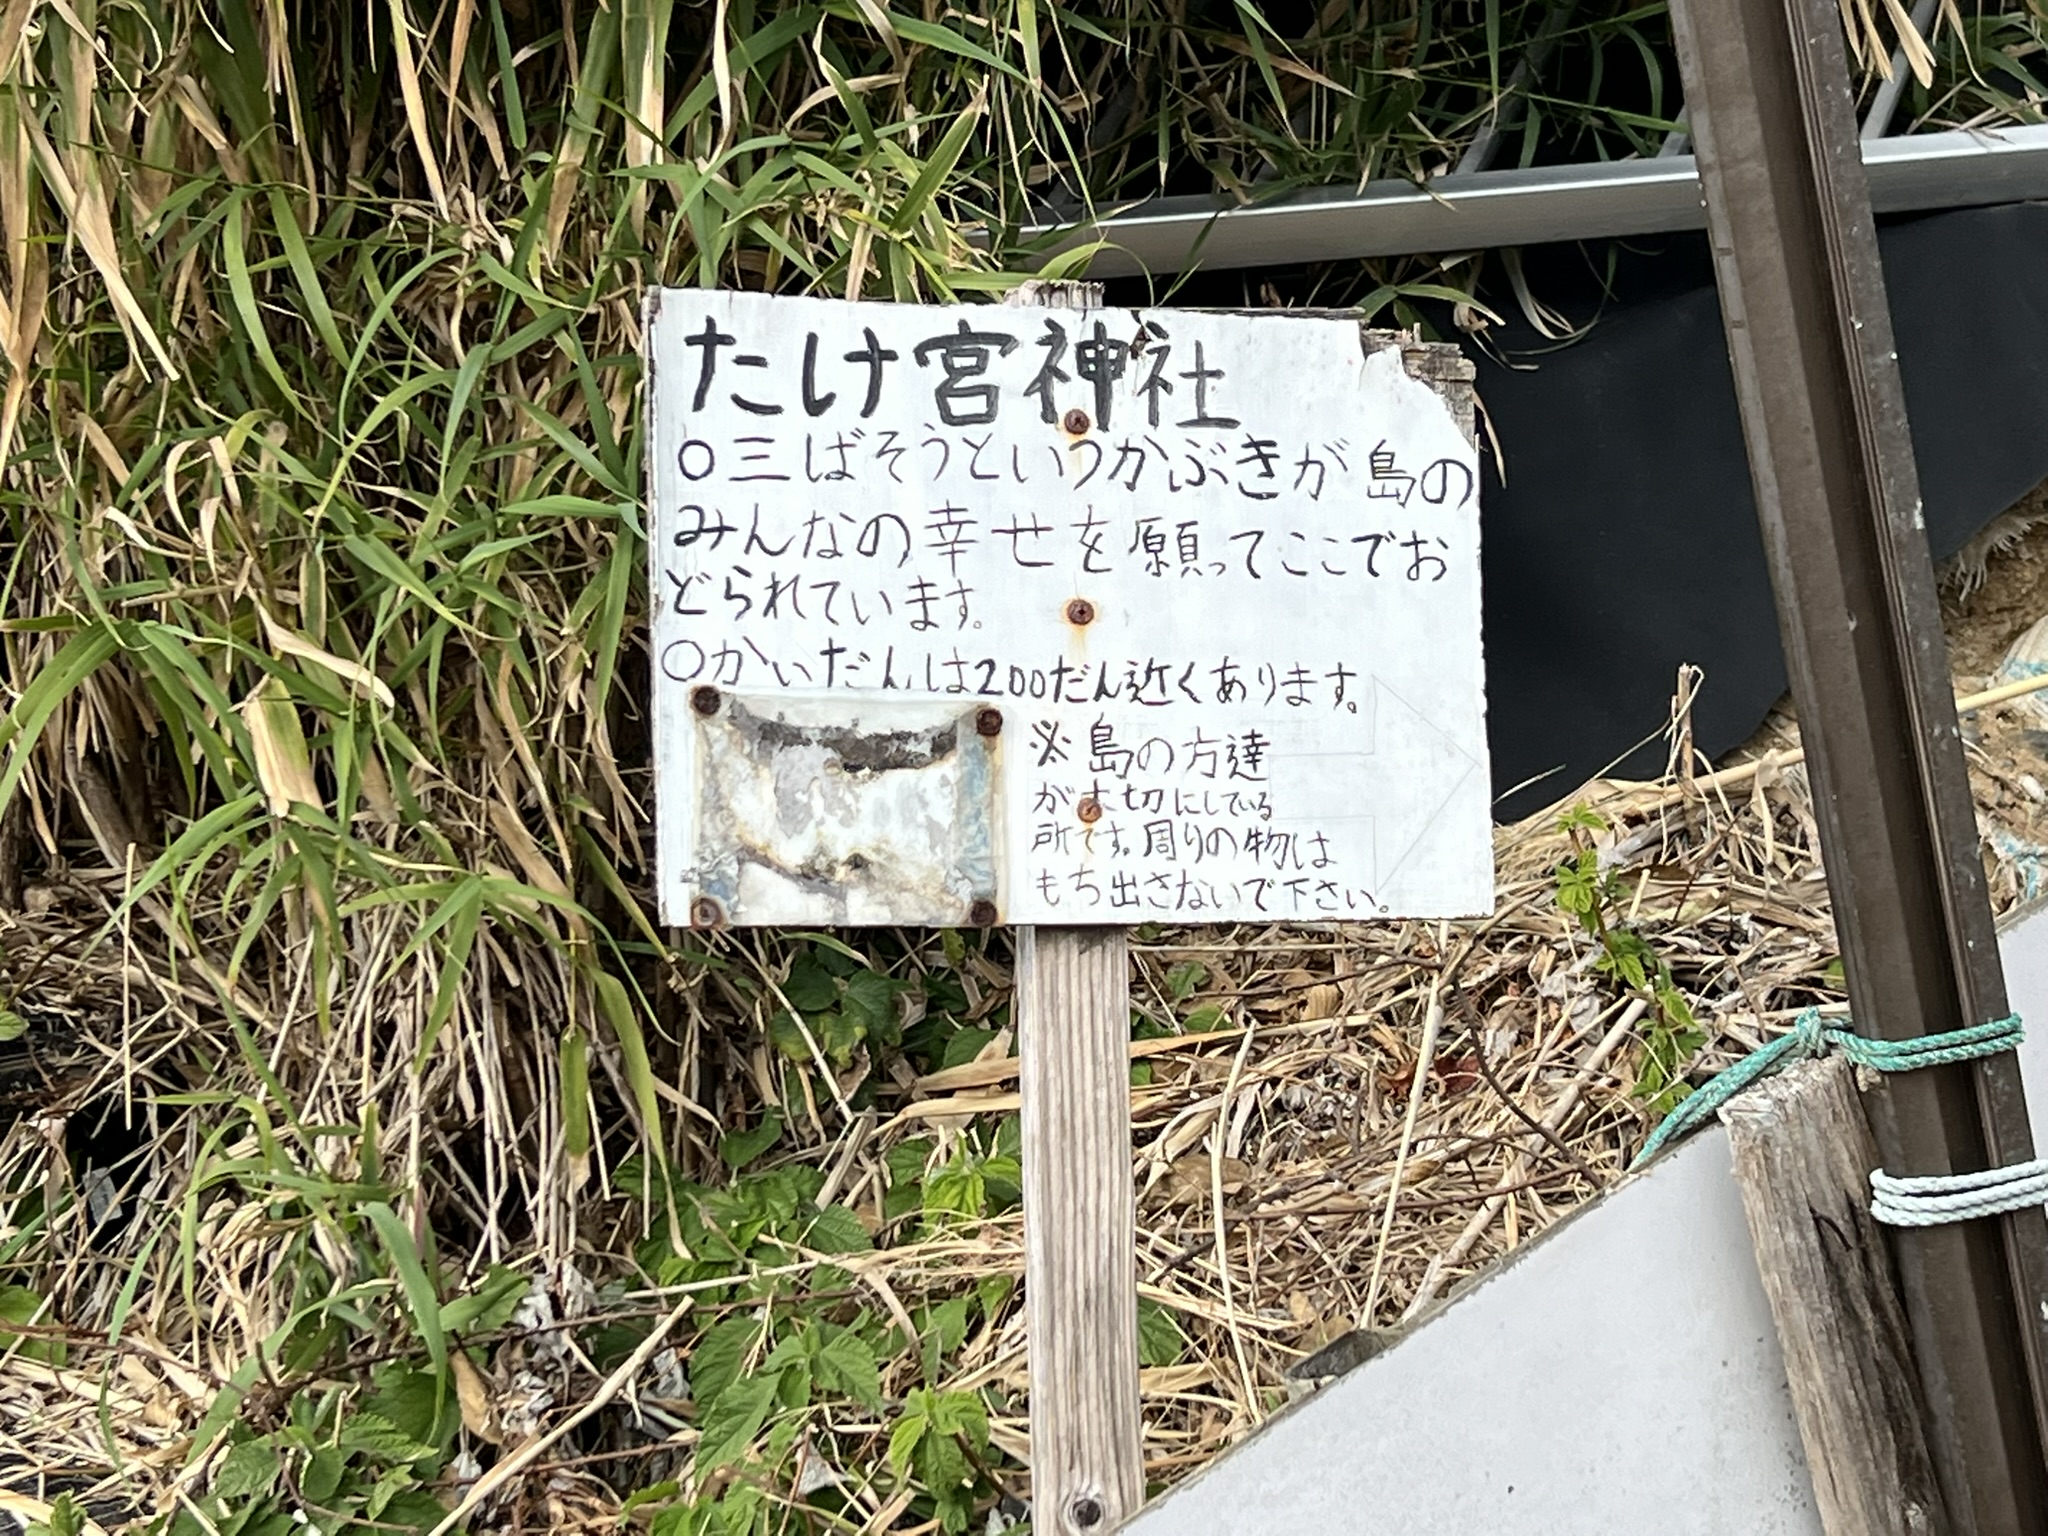 たけ宮神社
○三ばそうというかぶきが島の
みんなの幸せを願ってここでお
どられています。
○かいだんは200だん近くあります。
※島の方達
が大切にしている
所です。周りの物は
もち出さないで下さい。